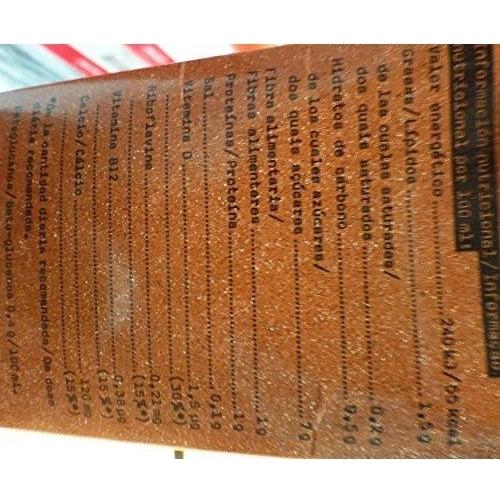 Información nutricional/
nutricional por 100 ml:
Valor energético 240 kJ/ kcal
Grasas/Lípidos 1,5 g
de las cuales saturadas/
dos quais saturados
Hidratos de carbono
de los cuales azúcares/
dos quais açúcares
Fibra alimentaria/
Fibras alimentares 1 g
Proteínas/Proteína 1 g
Sal 0,1 g
Vitamina D 1,5 µg
(30%*)
Riboflavina 0,21 mg
(15%*)
Vitamina B12 0,38 µg
(15%*)
Calcio/Cálcio 120 mg
(15%*)
*de la cantidad diaria recomendada/da dose
diária recomendada.
0,4 g/100 ml.